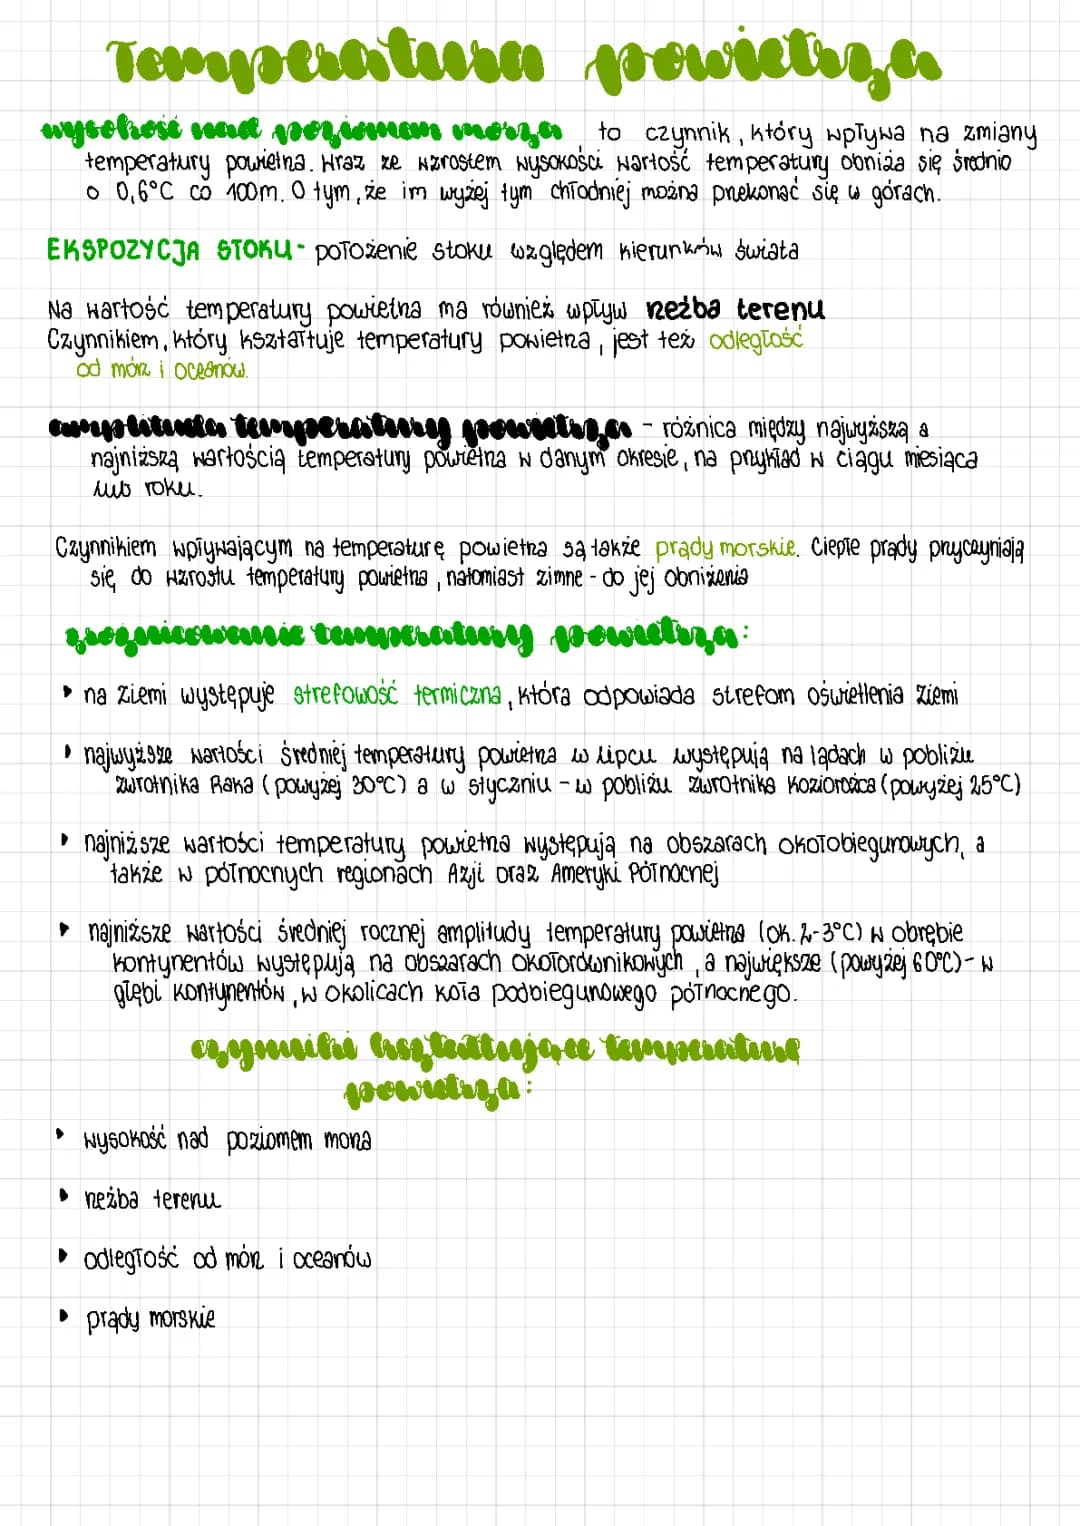 Temperatura powietrza
wysokość nad poziomem morza to czynnik, który wpływa na zmiany
temperatury powietrza. Wraz ze wzrostem wysokości wartość temperatury obniża się średnio
o 0,6°C co 100m. O tym, że im wyżej tym chłodniej można przekonać się w górach.
EKSPOZYCJA STOKU - położenie stoku względem kierunków świata
Na wartość temperatury powietrza ma również wpływ rzeźba terenu
Czynnikiem, który kształtuje temperatury powietrza, jest też odległość
od mórz i oceanów.
amplituda temperatury powietrza - różnica między najwyższą a
najniższą wartością temperatury powietrza w danym okresie, na przykład w ciągu miesiąca
lub roku.
Czynnikiem wpływającym na temperaturę powietrza są także prądy morskie. Ciepłe prądy przyczyniają
się do wzrostu temperatury powietrza, natomiast zimne - do jej obniżenia
zróżnicowanie temperatury powietrza:
• na Ziemi występuje strefowość termiczna, która odpowiada strefom oświetlenia Ziemi
• najwyższe wartości średniej temperatury powietrza w lipcu występują na lądach w pobliżu
zwrotnika Raka (powyżej 30°C) a w styczniu - w pobliżu zwrotnika Koziorożca (powyżej 25°C)
• najniższe wartości temperatury powietrza występują na obszarach okołobiegunowych, a
także w północnych regionach Azji oraz Ameryki Północnej
• najniższe wartości średniej rocznej amplitudy temperatury powietrza (ok. 2-3°C) w obrębie
kontynentów występują na obszarach okołorównikowych, a największe (powyżej 60°C) - w
głębi kontynentów, w okolicach koła podbiegunowego północnego.
czynniki kształtujące temperaturę
powietrza:
• wysokość nad poziomem morza
• rzeźba terenu
• odległość od mórz i oceanów
• prądy morskie